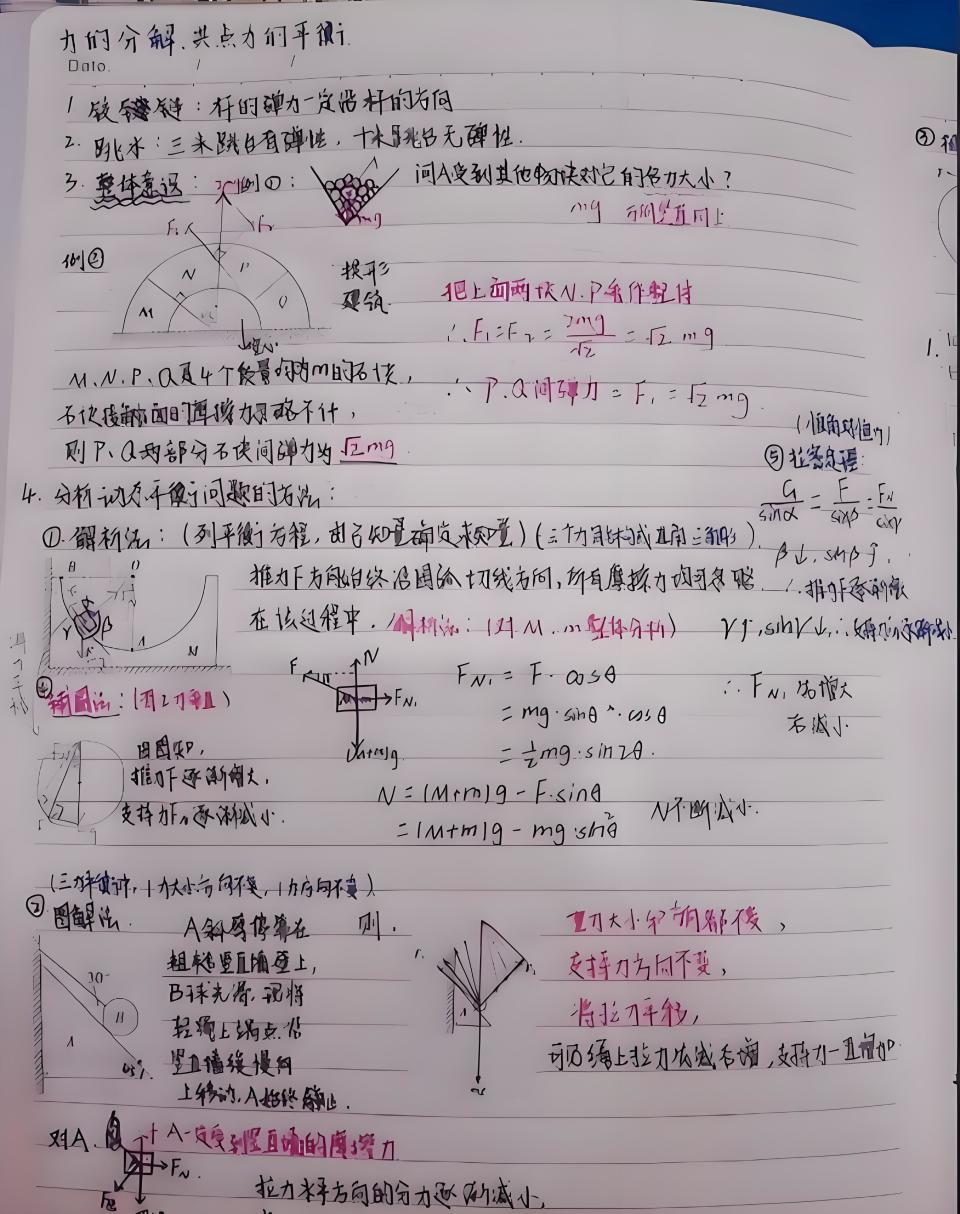 力的分解.共点力的平衡
Date.
1 铰链：杆的弹力一定沿杆的方向
2. 跳水：三米跳台有弹性，十米跳台无弹性.
3. 整体意识：例①： 问A受到其他物块对它的合力大小？
mg 方向竖直向上
例② 拱形建筑
M N P Q
把上面两块N.P看作整体
∴F₁=F₂=2mg/√2=√2 mg
M.N.P.Q是4个质量均为m的石块，
∴ P.Q间弹力=F₁=√2mg.
石块接触面间的摩擦力忽略不计，
则P、Q两部分石块间弹力为√2mg.
⑤拉密定理：
G/sinα=F/sinβ=F_N/sinγ
β↓,sinβ↑,
∴推力F逐渐增大
γ↑,sinγ↓,∴支持力F逐渐减小
4. 分析动态平衡问题的方法：
①.解析法：(列平衡方程，由已知量确定未知量)(三个力能构成直角三角形)
推力F方向始终沿圆弧切线方向，所有摩擦力均可忽略
在该过程中. 解析法：(对M.m整体分析)
F N F_N₁ (M+m)g
F_N₁=F·cosθ
=mg·sinθ·cosθ
=½mg·sin2θ.
∴F_N₁先增大
后减小
N=(M+m)g-F·sinθ
=(M+m)g-mg·sin²θ
N不断减小.
④辅圆法：(有2力垂直)
由图知,
推力F逐渐增大,
支持力F_N逐渐减小.
(三力平衡时，1力大小方向不变，1力方向不变)
②图解法.
30° B A
A斜劈停靠在
粗糙竖直墙壁上，
B球光滑.现将
轻绳上端点沿
竖直墙缓慢向
上移动，A始终静止.
则.
重力大小和方向都不变，
支持力方向不变，
将拉力平移，
可见绳上拉力先减后增，支持力一直增加
对A. A一定受到竖直墙的摩擦力
F_N
拉力水平方向的分力逐渐减小,